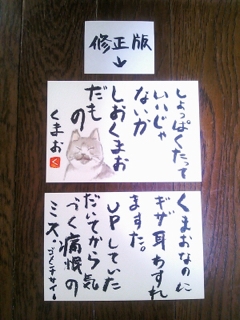 修正版
↓
しょっぱくたて
いいじゃ
ないか
しおくまお
だもの
くまお
くまおなのに
ギザ耳わすれ
ますた。
UPしていた
だいてから気
づく痛恨の
ミス。